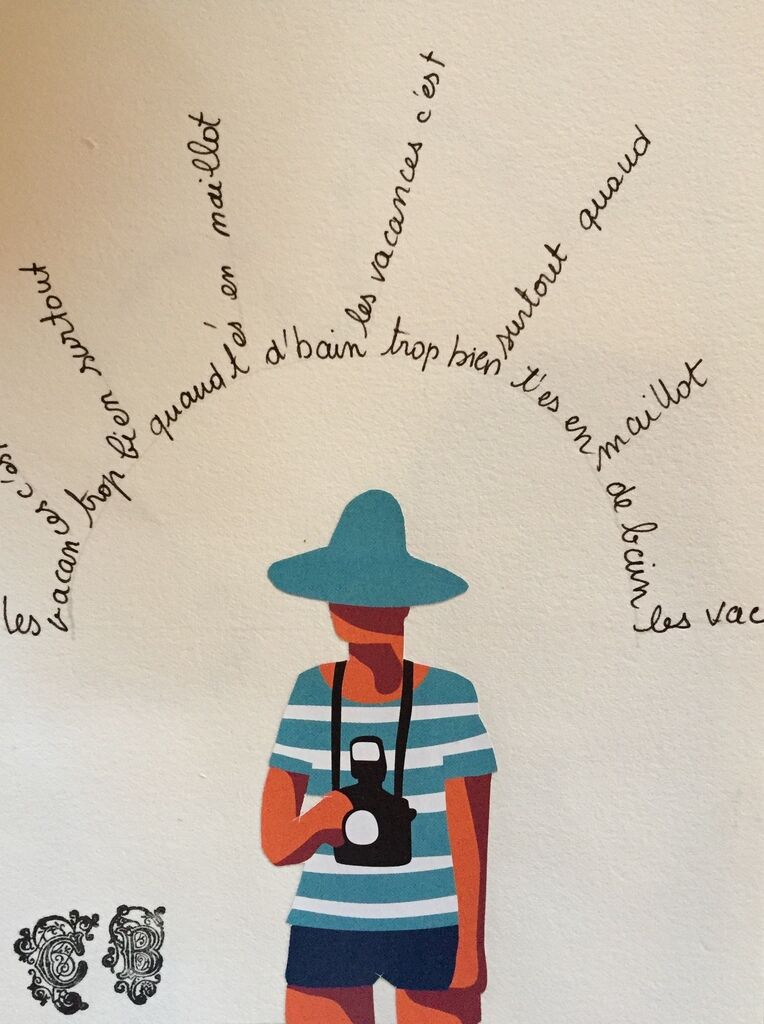 les vacances c'est
trop bien surtout
quand t'es en maillot
d'bain les vacances c'est
trop bien surtout quand
t'es en maillot
de bain les vac
C B